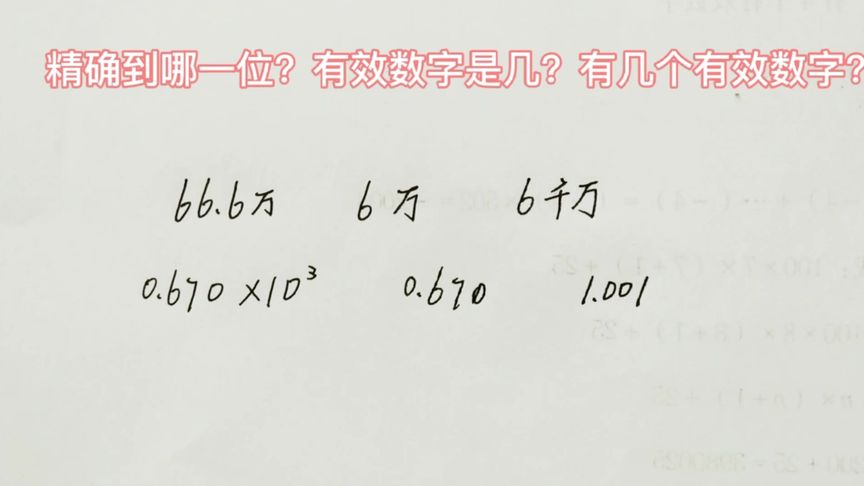 精确到哪一位？有效数字是几？有几个有效数字？
66.6万 6万 6千万
0.670×10³ 0.670 1.001